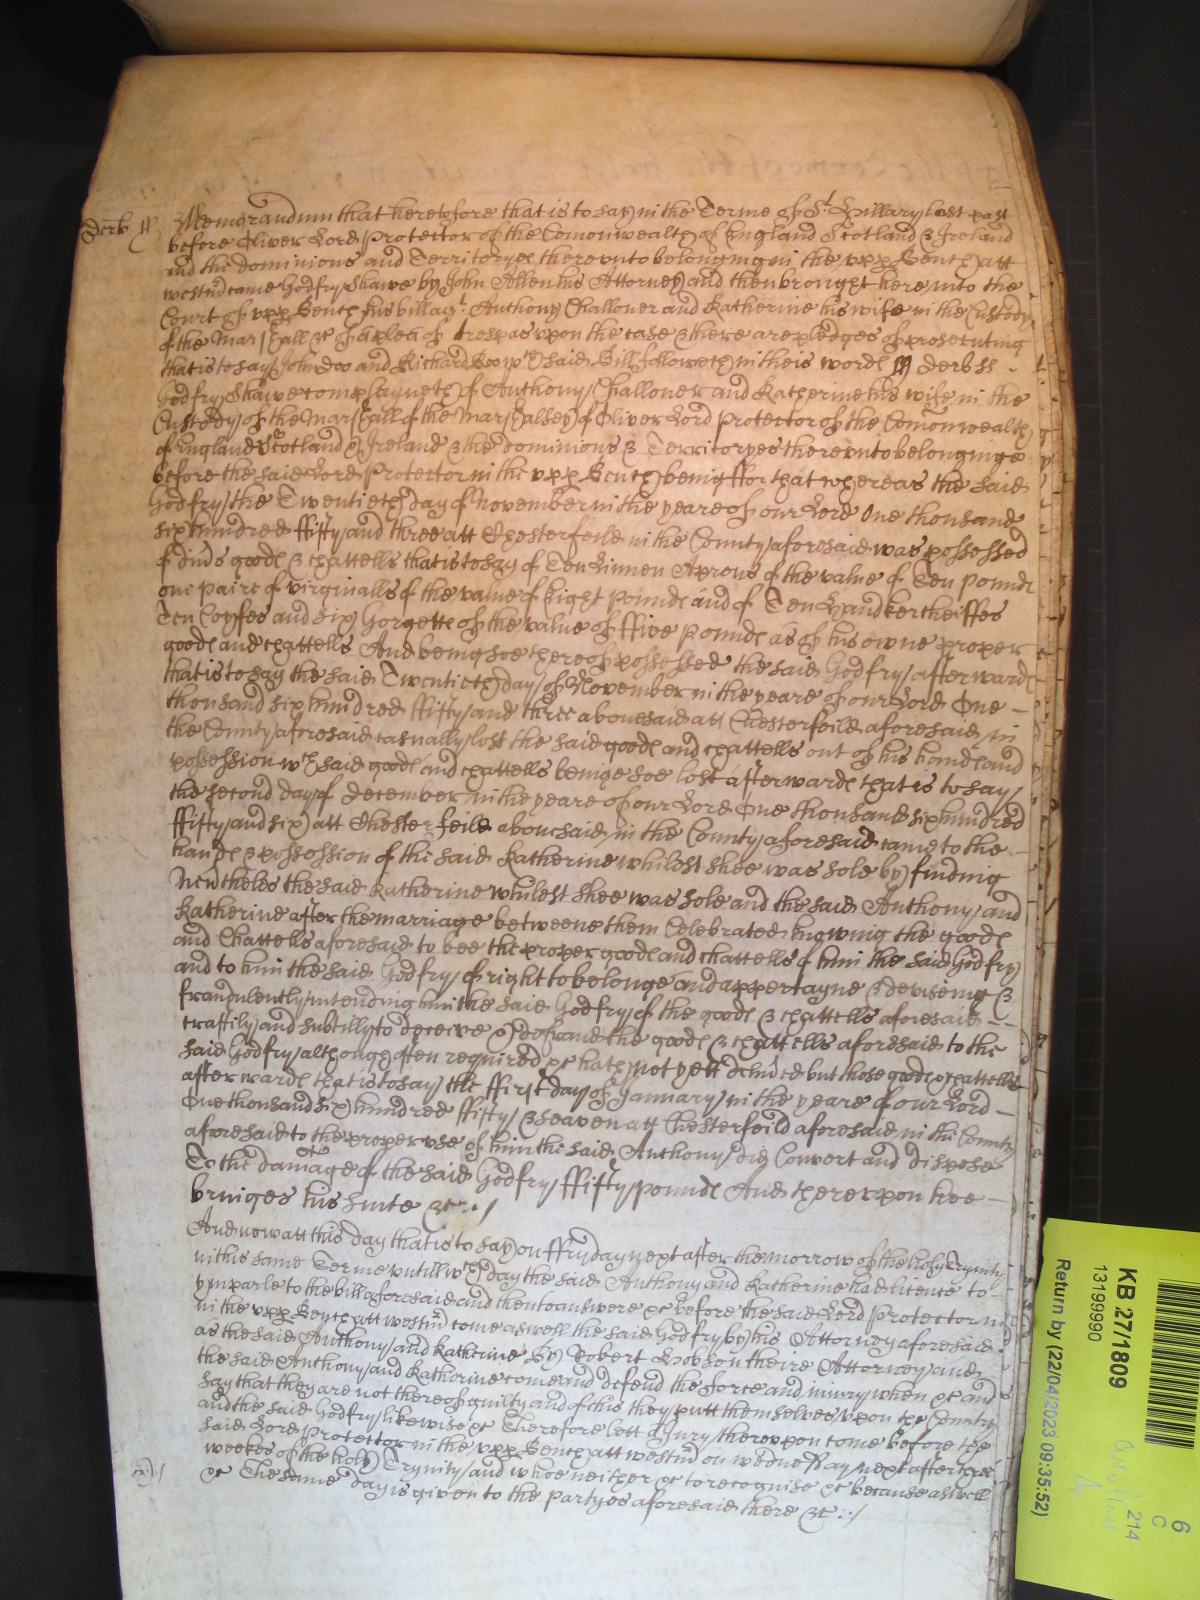 Derb ss
Memorandum that heretofore that is to say in the Terme of St. Hillary last past
before Oliver Lord Protector of the Comonwealth of England Scotland & Ireland
and the dominions and Territoryes thereunto belonging in the upp Bench att
Westm̃ came Godfry Shawe by John Allen his Attorney and then brought here into the
Court of upp Bench his bill agt. Anthony Challoner and Katherine his wife in the Custody
of the Marshall &c of a plea of trespas upon the case & there are pledges of prosecuting
that is to say John doo and Richard Roo wch said Bill followeth in theis words ss derb ss.
Godfry Shawe complayneth of Anthony Challoner and Katherine his wife in the
Custody of the Marshall of the Marshalsey of Oliver Lord Protector of the Comonwealth
of England Scotland & Ireland & the dominions & Territoryes thereunto belonginge
before the said Lord Protector in the upp Bench being ffor that whereas the said
Godfry the Twentieth day of November in the yeare of our Lord One thousand
six hundred ffifty and three att Chesterfeild in the County aforesaid was possessed
of divs goods & chattells that is to say of Ten Linnen Aprons of the value of Ten pounds
one paire of virginalls of the value of Eight pounds and of Ten Handkercheiffes
Ten Coyfes and six Gorgetts of the value of ffive pounds as of his owne proper
goods and chattells And being soe thereof possessed the said Godfry afterwards
that is to say the said Twentieth day of November in the yeare of our Lord One
thousand six hundred ffifty and three abovesaid att Chesterfeild aforesaid in
the County aforesaid casually lost the said goods and chattells out of his hands and
possession wch said goods and chattells beinge soe lost afterwards that is to say
the second day of December in the yeare of our Lord One thousand six hundred
ffifty and six att Chesterfeild abovsaid in the County aforesaid came to the
hands & possession of the said Katherine whilest shee was sole by finding
Nevtheles the said Katherine whilest shee was sole and the said Anthony and
Katherine after the marriage betweene them Celebrated knowing the goods
and Chattells aforesaid to bee the proper goods and chattells of him the said Godfry
and to him the said Godfry of right to belonge and appertayne & deviseing &
fraudulently intending him the said Godfry of the goods & chattells aforesaid
craftily and subtilly to deceive & defraud the goods & chattells aforesaid to the
said Godfry although often required &c hath not yett delivđed but those goods & chattells
afterwards that is to say the ffirst day of January in the yeare of our Lord
One thousand six hundred ffifty & seaven att Chesterfeild aforesaid in the County
aforesaid to the proper use of him the said Anthony did Convert and dispose
To the damage of the said Godfry ffifty pounds And thereupon hee
bringes his suite &c
And now att this day that is to say on ffryday next after the morrow of the holy Trynity
in this same Terme untill wch day the said Anthony and Katherine had licence to
ymparle to the bill aforesaid and then to answere &c before the said Lord Protector in
in the upp Bench att westm̃ come aswell the said Godfry by his Attorney aforesaid
as the said Anthony and Katherine By Robert Hobson theire Attorney and
the said Anthony and Katherine come and defend the force and iniury when &c and
say that they are not thereof guilty and of this they putt themselves upon the Country
and the said Godfry likewise &c Therefore lett a Jury thereupon come before the
said Lord Protector in the upp Bench att westm̃ on wednesday next after three
weekes of the holy Trynity and whoe neither &c to recognise &c because aswell
&c The same day is given to the partyes aforesaid there &c
KB 27/1809
13199990
Return by (22/04/2023 09:35:52)
6
C
214